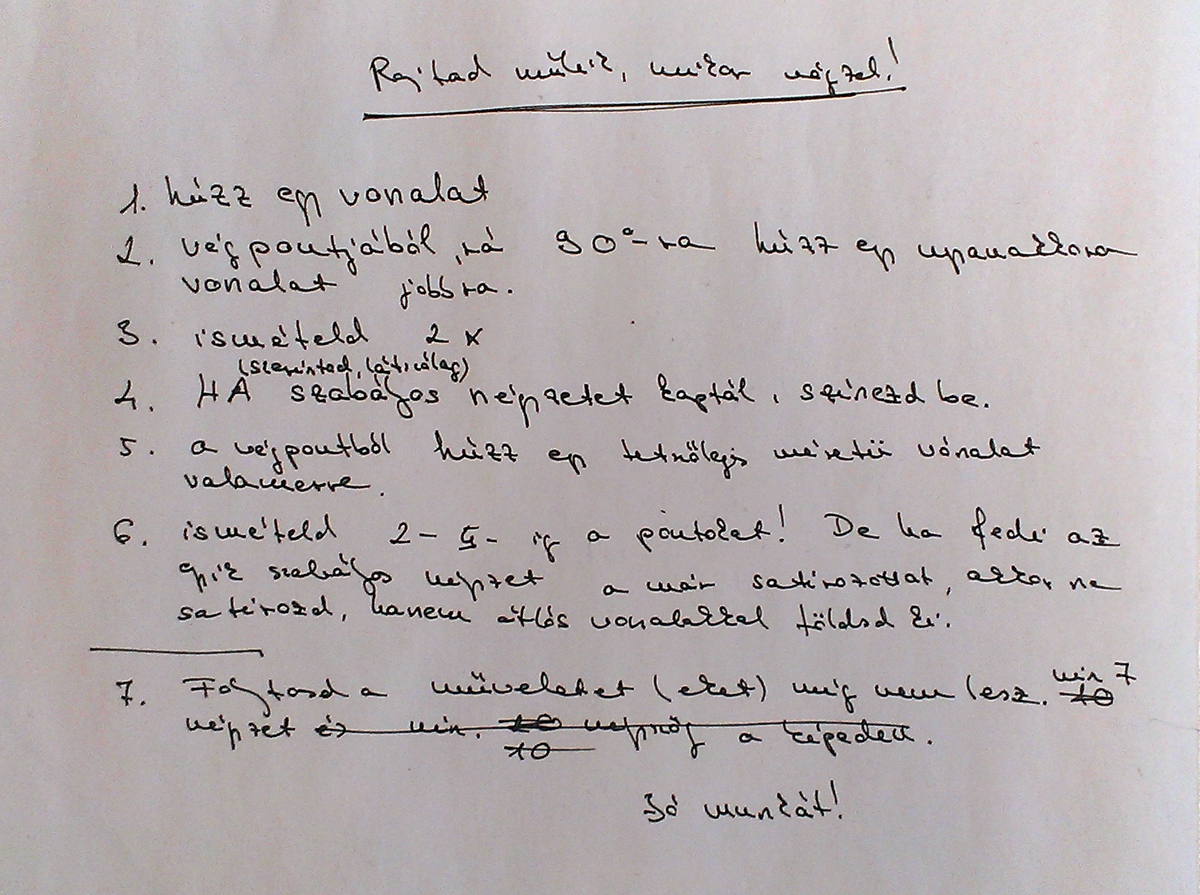 Rajtad múlik, mikor végzel!
1. húzz egy vonalat
2. végpontjából, rá 90°-ra húzz egy ugyanakkora
vonalat jobbra.
3. ismételd 2 x
(szerinted, látszólag)
4. HA szabályos négyzetet kaptál, színezd be.
5. a végpontból húzz egy tetszőleges méretű vonalat
valamerre.
6. ismételd 2-5-ig a pontokat! De ha fedi az
egyik szabályos négyzet a már satírozottat, akkor ne
satírozd, hanem átlós vonalakkal töltsd ki.
7. Folytasd a műveletet (eket) míg nem lesz. min 7 10
négyzet és min. 10 négyszög a képeden.
10
Jó munkát!